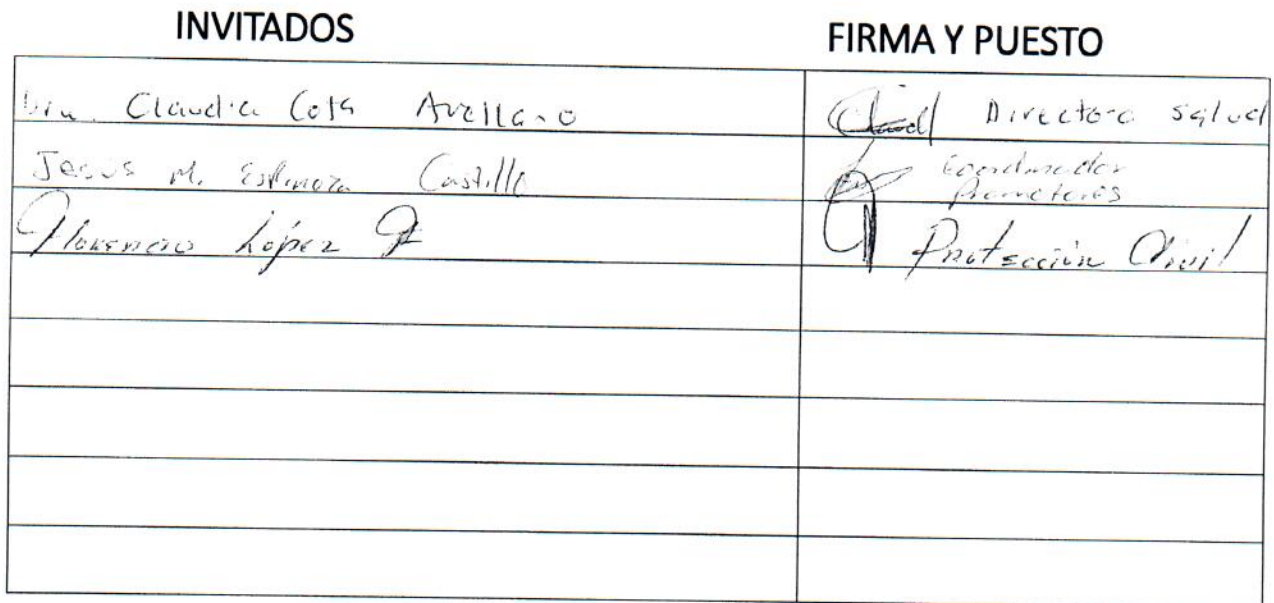 INVITADOS
FIRMA Y PUESTO
Dra. Claudia Cota Arellano
Directora Salud
Jesús M. Espinoza Castillo
Coordinador
Promotores
Florencio López
Protección Civil